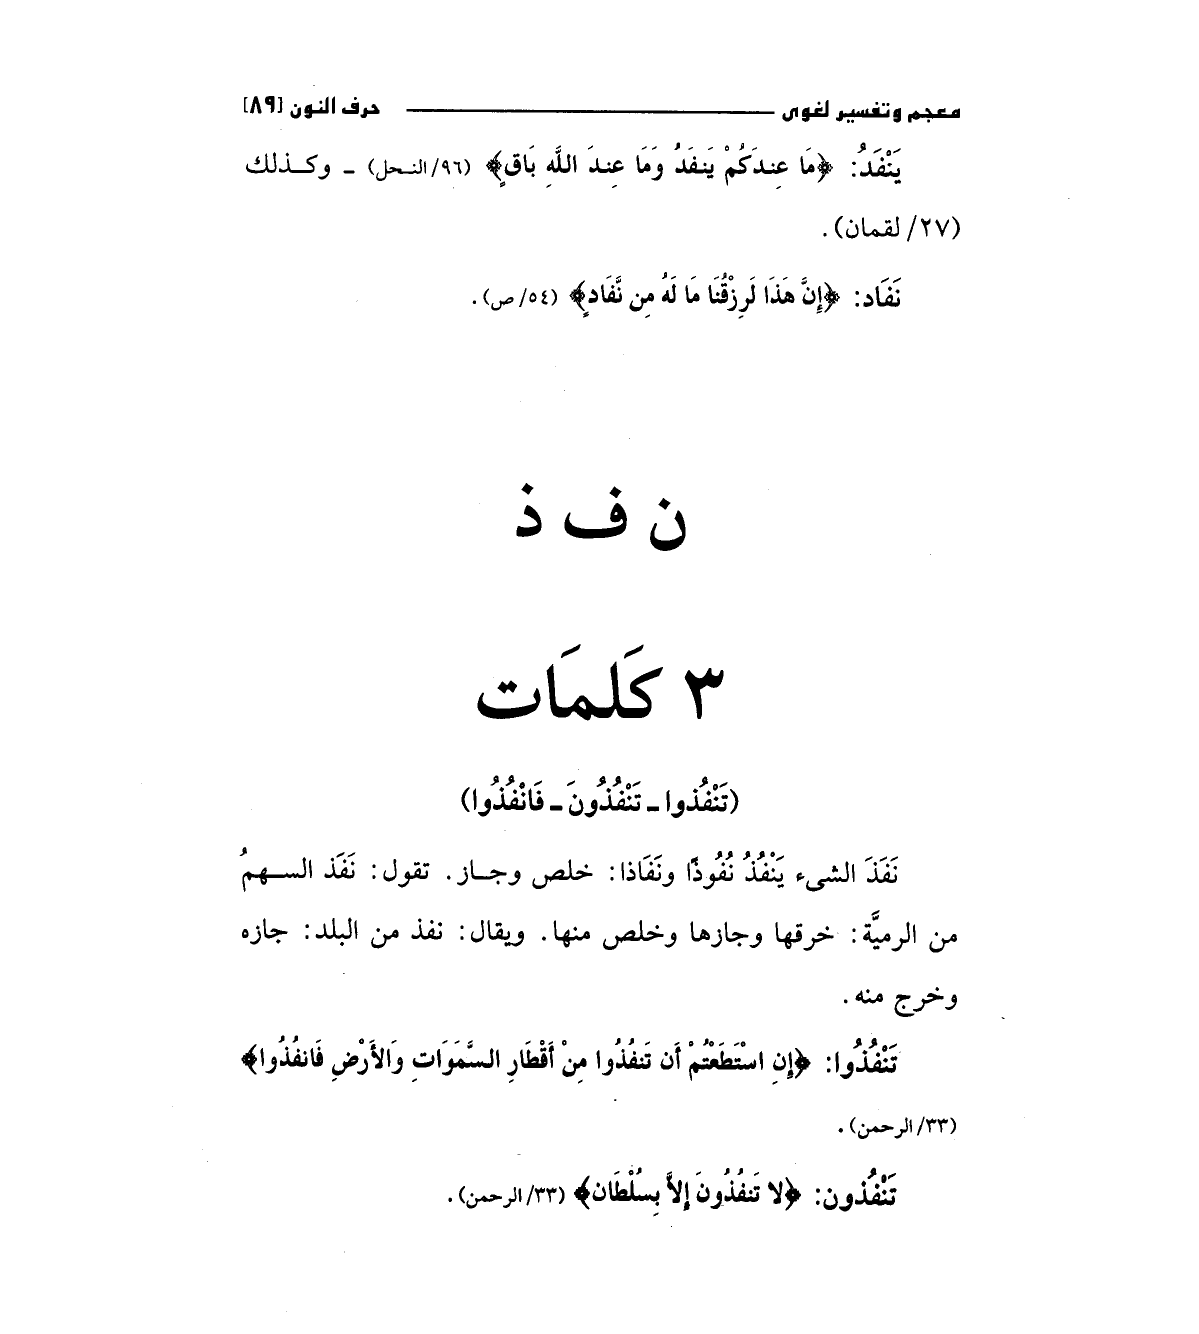 معجم وتفسير لغوى ــــــــ حرف النون [٨٩]
يَنْفَدُ: ﴿مَا عِندَكُمْ يَنفَدُ وَمَا عِندَ اللَّهِ بَاقٍ﴾ (٩٦/النحل) ـ وكذلك
(٢٧/ لقمان).
نَفَاد: ﴿إِنَّ هَذَا لَرِزْقُنَا مَا لَهُ مِن نَّفَادٍ﴾ (٥٤/ ص).
ن ف ذ
٣ كَلمَات
(تَنْفُذوا ـ تَنْفُذُونَ ـ فَانْفُذُوا)
نَفَذَ الشىء يَنْفُذُ نُفُوذًا ونَفَاذا: خلص وجاز. تقول: نَفَذ السهمُ
من الرميَّة: خرقها وجازها وخلص منها. ويقال: نفذ من البلد: جازه
وخرج منه.
تَنْفُذُوا: ﴿إِنِ اسْتَطَعْتُمْ أَن تَنفُذُوا مِنْ أَقْطَارِ السَّمَوَاتِ وَالأَرْضِ فَانفُذُوا﴾
(٣٣/ الرحمن).
تَنْفُذون: ﴿لا تَنفُذُونَ إِلاَّ بِسُلْطَان﴾ (٣٣/ الرحمن).